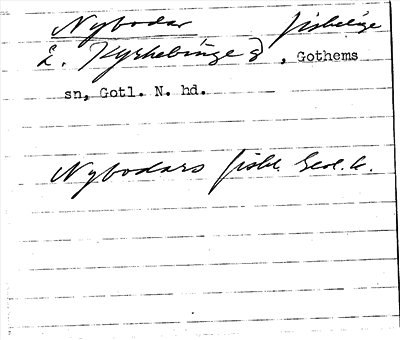 Nybodar fiskeläge
L. Kyrkebinge g, Gothems
sn, Gotl. N. hd.
Nybodars fiskl. Geol. k.